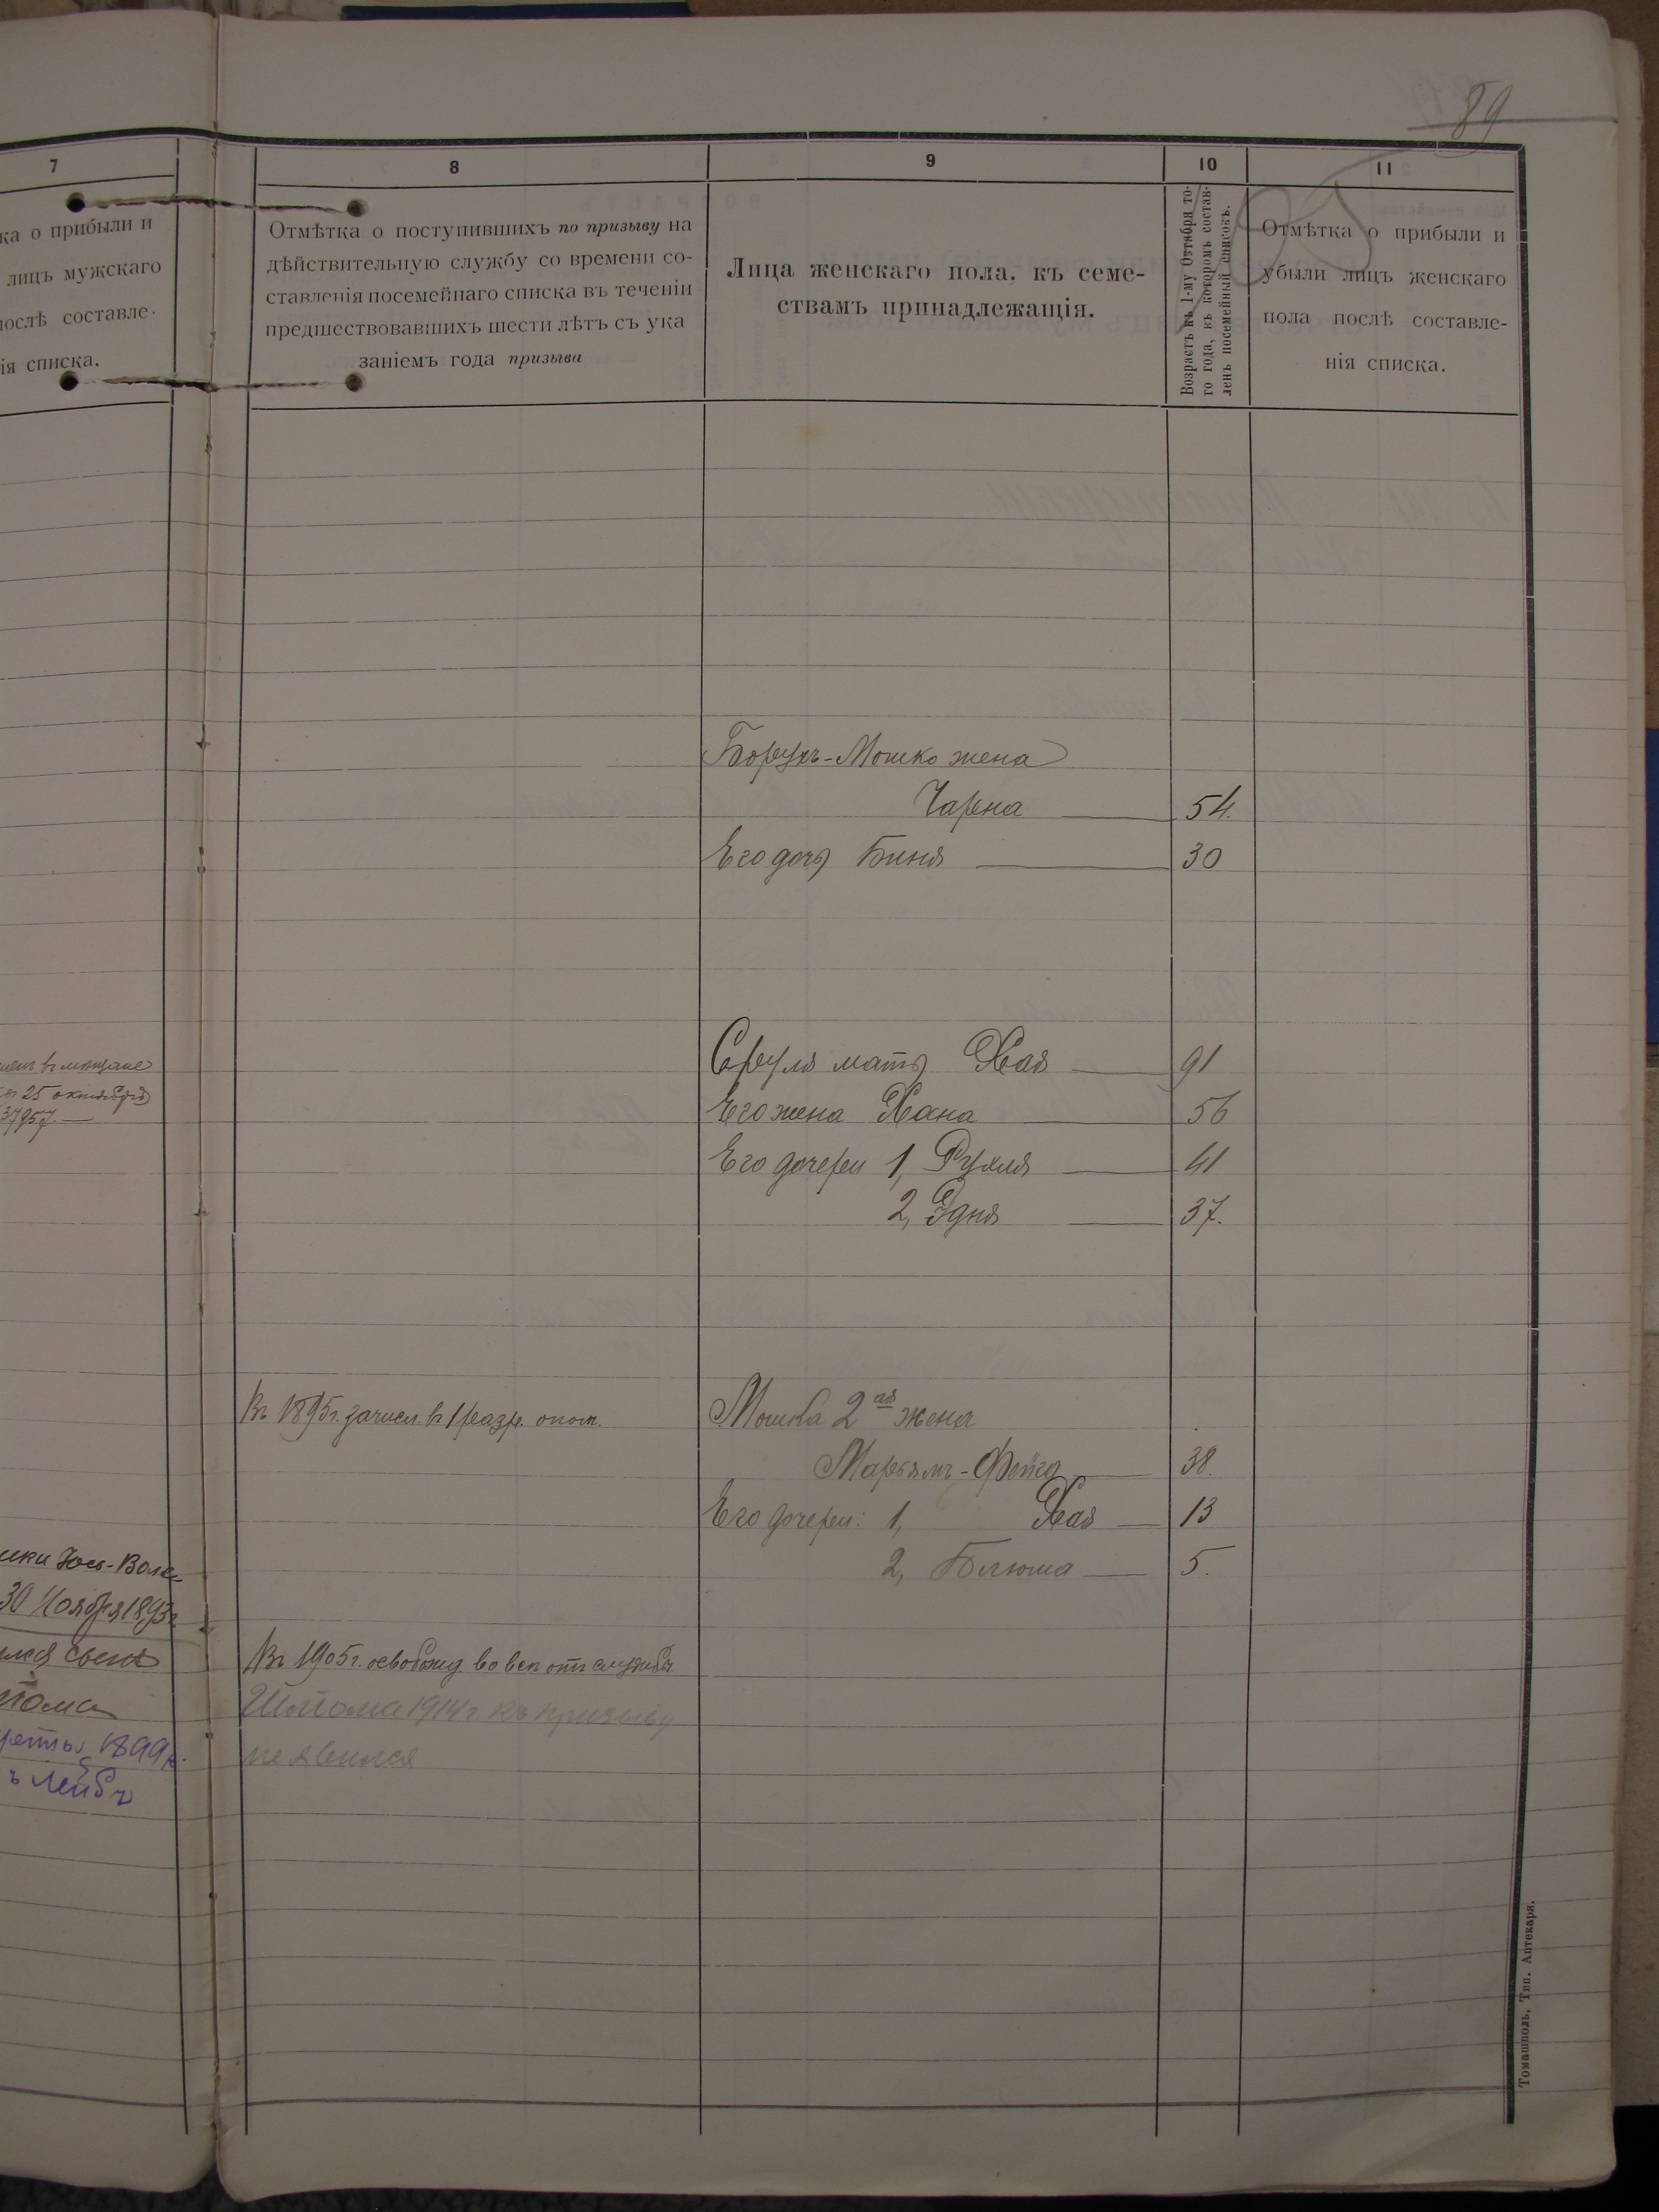 89
7
ка о прибыли и
лицъ мужскаго
послѣ составле-
ія списка.
8
Отмѣтка о поступившихъ по призыву на
дѣйствительную службу со времени со-
ставленія посемейнаго списка въ теченіи
предшествовавшихъ шести лѣтъ съ ука
заніемъ года призыва
9
Лица женскаго пола, къ семе-
ствамъ принадлежащія.
10
Возрастъ къ 1-му Октября то-
го года, въ которомъ состав-
ленъ посемейный списокъ.
11
Отмѣтка о прибыли и
убыли лицъ женскаго
пола послѣ составле-
нія списка.
Борухъ-Мошко жена
Чарна 54.
Его дочь Биня 30
въ мѣщане
25 октября
37957
Сруля мать Хая 91
Его жена Хана 56
Его дочери 1, Рухля 41
2, Эдня 37.
Въ 1895г. зачисл. в 1 разр. опол.
Мошка 2ая жена
Марьямъ-Фейга 38.
Его дочери: 1, Хая 13
2, Блюма 5.
Іось-Вол
30 Ноября 1893г
Въ 1905г. освобожд. вовсе отъ службы
Шлома 1914г къ призыву
не явился
лома
1899г.
ъ Лейбъ
Томашполь, Тип. Аптекаря.